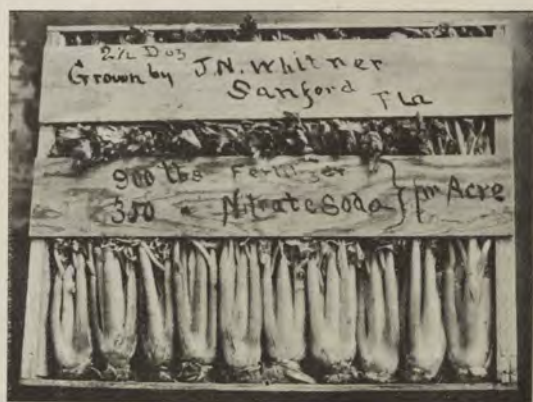 2 1/2 Doz
Grown by J.N. Whitner
Sanford Fla
900 lbs Fertilizer
350 " Nitrate Soda } pr Acre